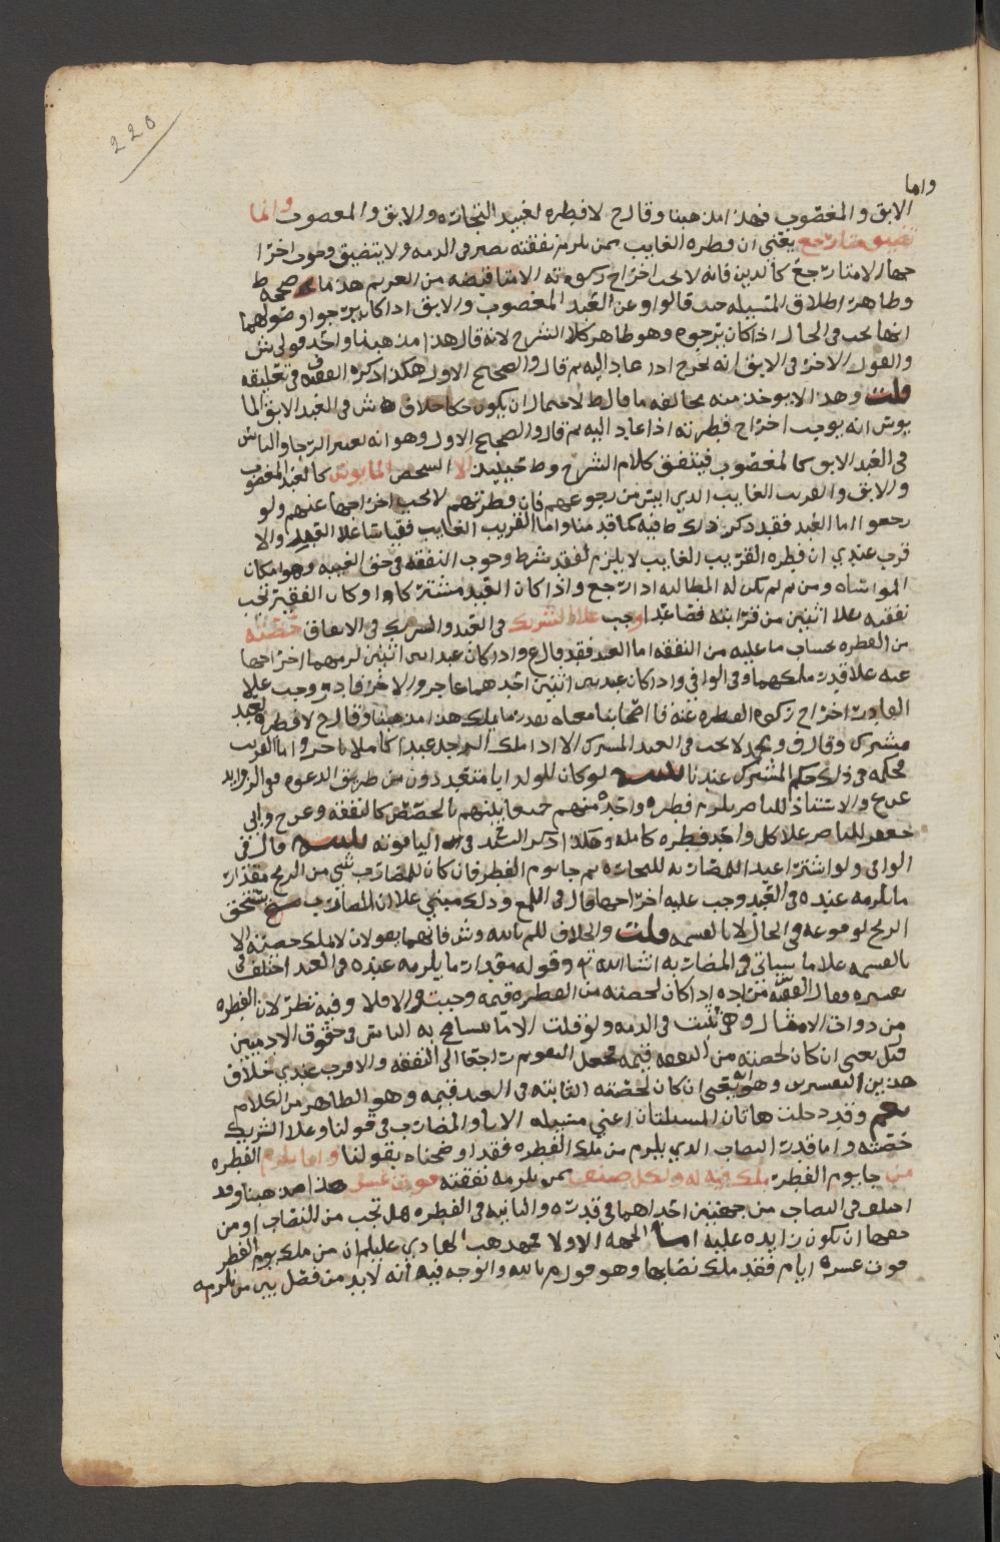 220
واما
الابق والمغصوب فهذا مذهبنا وقال ح لا فطره لعبيد التجاره والابق والمغصوب وانما
تضيق متى رجع يعني ان فطره الغايب ممن يلزم نفقته تصير في الذمه ولا يتضيق وجوب اخرا
جها الا متى رجع كالدين فانه لا يجب اخراج زكوته الا متى قبضه من الغريم هذا ما صححه ط
وظاهر اطلاق المسيله حيث قالوا وعن العبد المغصوب والابق اذا كان يرجوا وصولهما
انها تجب في الحال اذا كان يرجوه وهو ظاهر كلام الشرح لانه قال هذا مذهبنا واحد قولي ش
والقول الاخر في الابق انه يخرج اذا عاد اليه ثم قال والصحيح الاول هكذا ذكره الفقيه ف في تعليقه
قلت وهذا لا يوخذ منه مخالفه ما قال ط لاحتمال ان يكون حكا خلاف ش في العبد الابق الما
يوس انه يوجب اخراج فطرته اذا عاد اليه ثم قال والصحيح الاول وهو انه يعتبر الرجا والياس
في العبد الابق كالمغصوب فيتفق كلام الشرح وط حينيذ الا الشخص المايوس كالعبد المغصوب
والابق والقريب الغايب الذي ايس من رجوعهم فان فطرتهم لا يجب اخراجها عنهم ولو
رجعوا اما العبد فقد ذكر ذلك ط فيه كما قدمنا واما القريب الغايب فقياسا علا العبد والا
قرب عندي ان فطره القريب الغايب لا يلزم لفقد شرط وجوب النفقه في حق الغيبه وهو امكان
المواساه ومن ثم لم يكن له المطالبه اذا رجع واذا كان العبد مشتركا او كان الفقير تجب
نفقته علا اثنين من قرابته فصاعدا وجب علا الشريك في العبد والشريك في الانفاق حصته
من الفطره بحساب ما عليه من النفقه اما العبد فقد قال ع واذا كان عبد بين اثنين لزمهما اخراجها
عنه علا قدر ملكهما وفي الوافي واذا كان عبد بين اثنين احدهما عاجز والاخر قادر وجب علا
القادر اخراج زكوه الفطره عنه قال اصحابنا معناه بقدر ما يملك هذا مذهبنا وقال ح لا فطره لعبد
مشترك وقال ف ومحمد لا تجب في العبد المشترك الا اذا ملك الرجل عبدا كاملا باجزا واما القريب
فحكمه في ذلك حكم المشترك عندنا لو كان للولد ابا متعدد دون من طريق الدعوه ففي الزوايد
عن ع والاستاذ للناصر يلزم فطره واحده منهم جميعا بينهم بالحصص كالنفقه وعن ح وابي
جعفر للناصر علا كل واحد فطره كامله وهكذا ذكر السيد في الياقوته قال في
الوافي ولو اشترا عبد المضاربه للتجاره ثم جا يوم الفطر فان كان للمضارب شي من الربح مقدار
ما يلزمه عنده في العبد وجب عليه اخراجها قال في اللمع وذلك مبني علا ان المضارب يستحق
الربح لوقوعه في الحال لا بالقسمه قلت والخلاف للم بالله وش فانهما يقولان لا يملك حصته الا
بالقسمه علا ما سياتي في المضاربه ان شا الله تع وقوله مقدار ما يلزمه عنده في العبد اختلف في
تفسيره فقال الفقيه اذا كان لحصته من الفطره قيمه وجبت والا فلا وفيه نظر لان الفطره
من ذوات الامثال وهي تثبت في الذمه ولو قلت الا ما يتسامح به الناس في حقوق الادميين
قيل يعني ان كان لحصته من النفقه قيمه فجعل التقويم راجعا الى النفقه والاقرب عندي خلاف
هذين التفسيرين وهو انه يعني ان كان لحصته الثابته في العبد قيمه وهو الظاهر من الكلام
نعم وقد دخلت هاتان المسيلتان اعني مسيله الابا والمضارب في قولنا وعلا الشريك
حصته واما قدر النصاب الذي يلزم من ملك الفطره فقد اوضحناه بقولنا وانما يلزم الفطره
من جا يوم الفطر يملك فيه له ولكل صنف ممن يلزمه نفقته قوت عشر هذا مذهبنا وقد
اختلف في النصاب من جهتين احداهما في قدره والثانيه في الفطره هل تجب من النصاب او من
حقها ان تكون زايده عليه اما الجهه الاولا فمذهب الهادي عليلم ان من ملك يوم الفطر
قوت عشره ايام فقد ملك نصابها وهو قول م بالله والوجه فيه انه لا بد من فصل بين من تلزمه